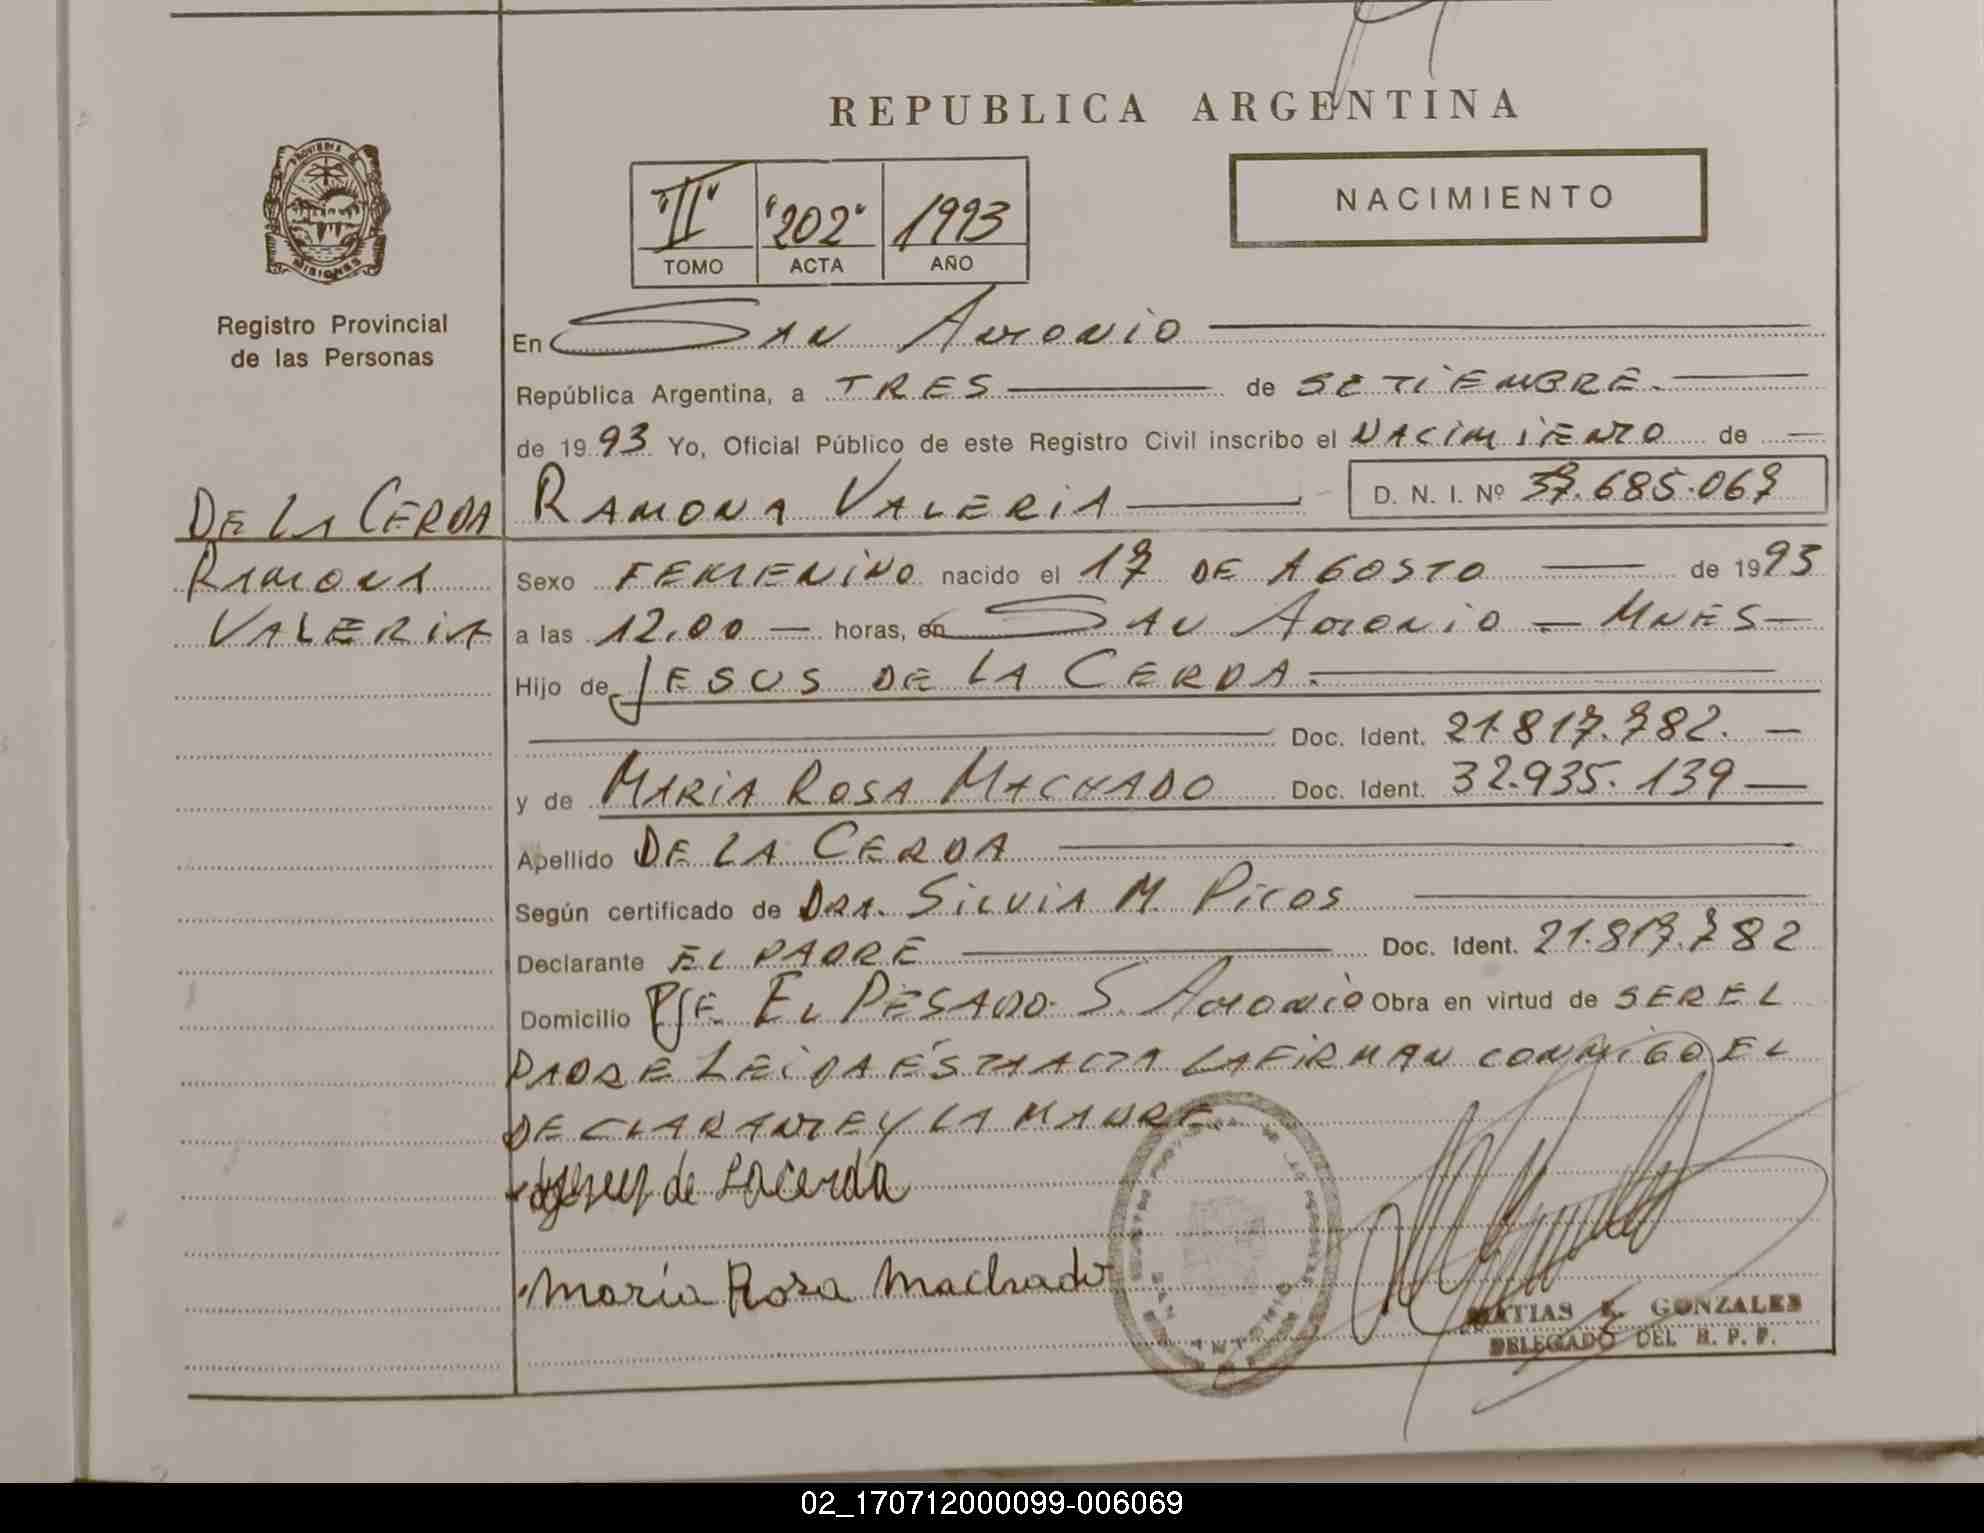 REPUBLICA ARGENTINA
NACIMIENTO
"II" "202" 1993
TOMO ACTA AÑO
PROVINCIA DE
MISIONES
Registro Provincial
de las Personas
DE LA CERDA
RAMONA
VALERIA
En SAN ANTONIO
República Argentina, a TRES de SETIEMBRE.
de 1993 Yo, Oficial Público de este Registro Civil inscribo el NACIMIENTO de
RAMONA VALERIA D. N. I. Nº 37.685.067
Sexo FEMENINO nacido el 17 DE AGOSTO de 1993
a las 12.00 horas, en SAN ANTONIO - MNES
Hijo de JESUS DE LA CERDA.
Doc. Ident. 21.817.782.
y de MARIA ROSA MACHADO Doc. Ident. 32.935.139
Apellido DE LA CERDA
Según certificado de DRA. SILVIA M. PICOS
Declarante EL PADRE Doc. Ident. 21.817.782
Domicilio PJE. EL PESADO S. ANTONIO Obra en virtud de SER EL
PADRE LEIDA ÉSTA ACTA LA FIRMAN CONMIGO EL
DECLARANTE Y LA MADRE.
de Lacerda
María Rosa Machado
MATIAS E. GONZALES
DELEGADO DEL R. P. P.
02_170712000099-006069